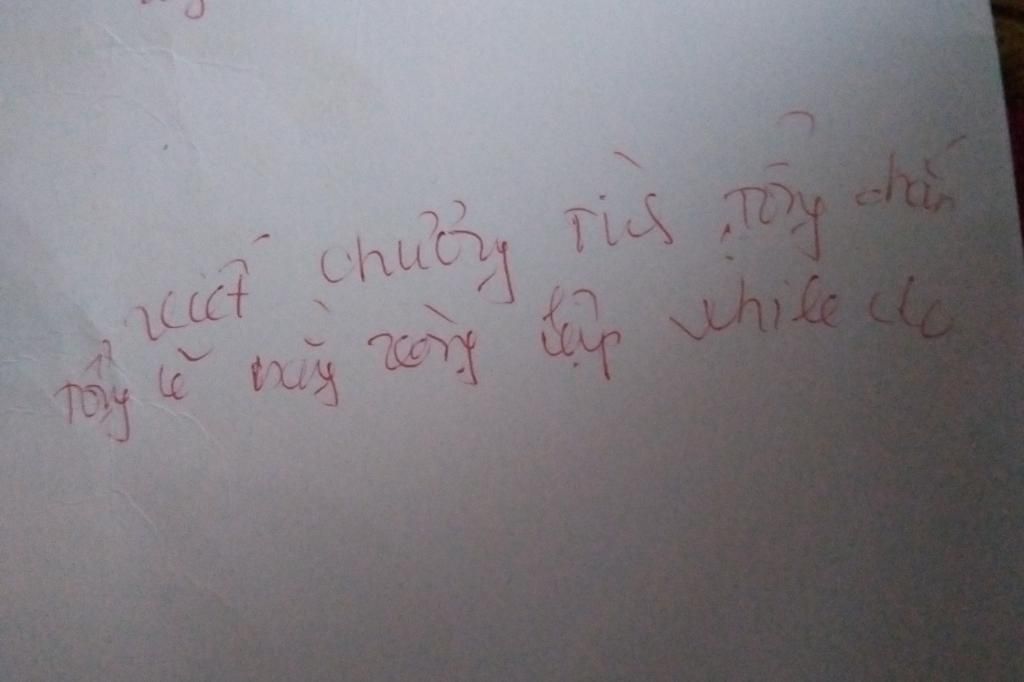 viết chương tìn tổng chẵn
tổng lẻ bằng vòng lặp while do